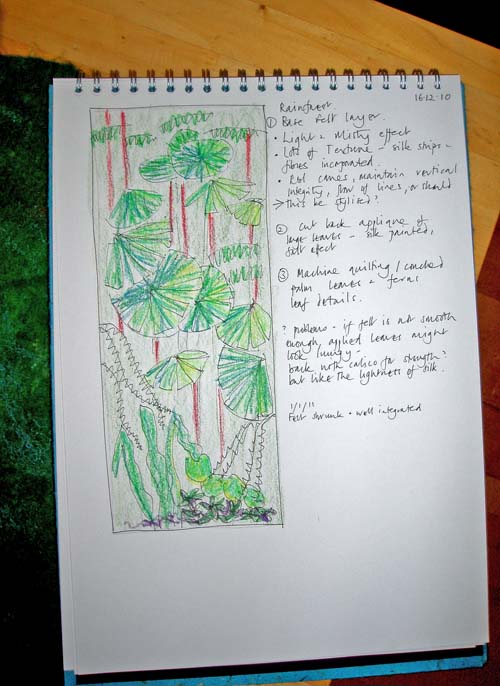 16-12-10
Rainforest.
① Base felt layer.
• Light & Misty effect
• Lots of Texture - silk strips -
fibres incorporated.
• Red canes, maintain vertical
integrity, flow of lines, or should
→ this be stylized?
② Cut back applique of
large leaves - silk painted,
salt effect
③ Machine quilting / couched
palm leaves & ferns
leaf details.
? problems - if felt is not smooth
enough, applied leaves might
look lumpy -
back with calico for strength?
but like the lightness of silk.
1/1/11
Felt shrunk & well integrated